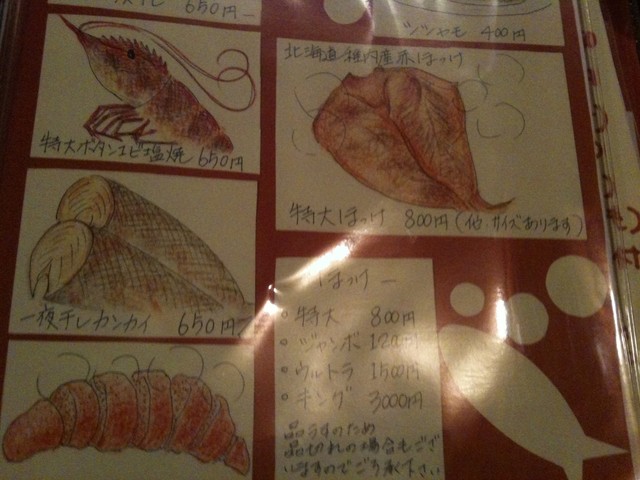 650円
特大ボタンエビ塩焼 650円
一夜干しカンカイ 650円
シシャモ 400円
北海道稚内産赤ほっけ
特大ほっけ 800円(他、サイズあります)
ほっけ
・特大 800円
・ジャンボ 1200円
・ウルトラ 1500円
・キング 3000円
品うすのため
品切れの場合もござ
いますのでご了承下さい